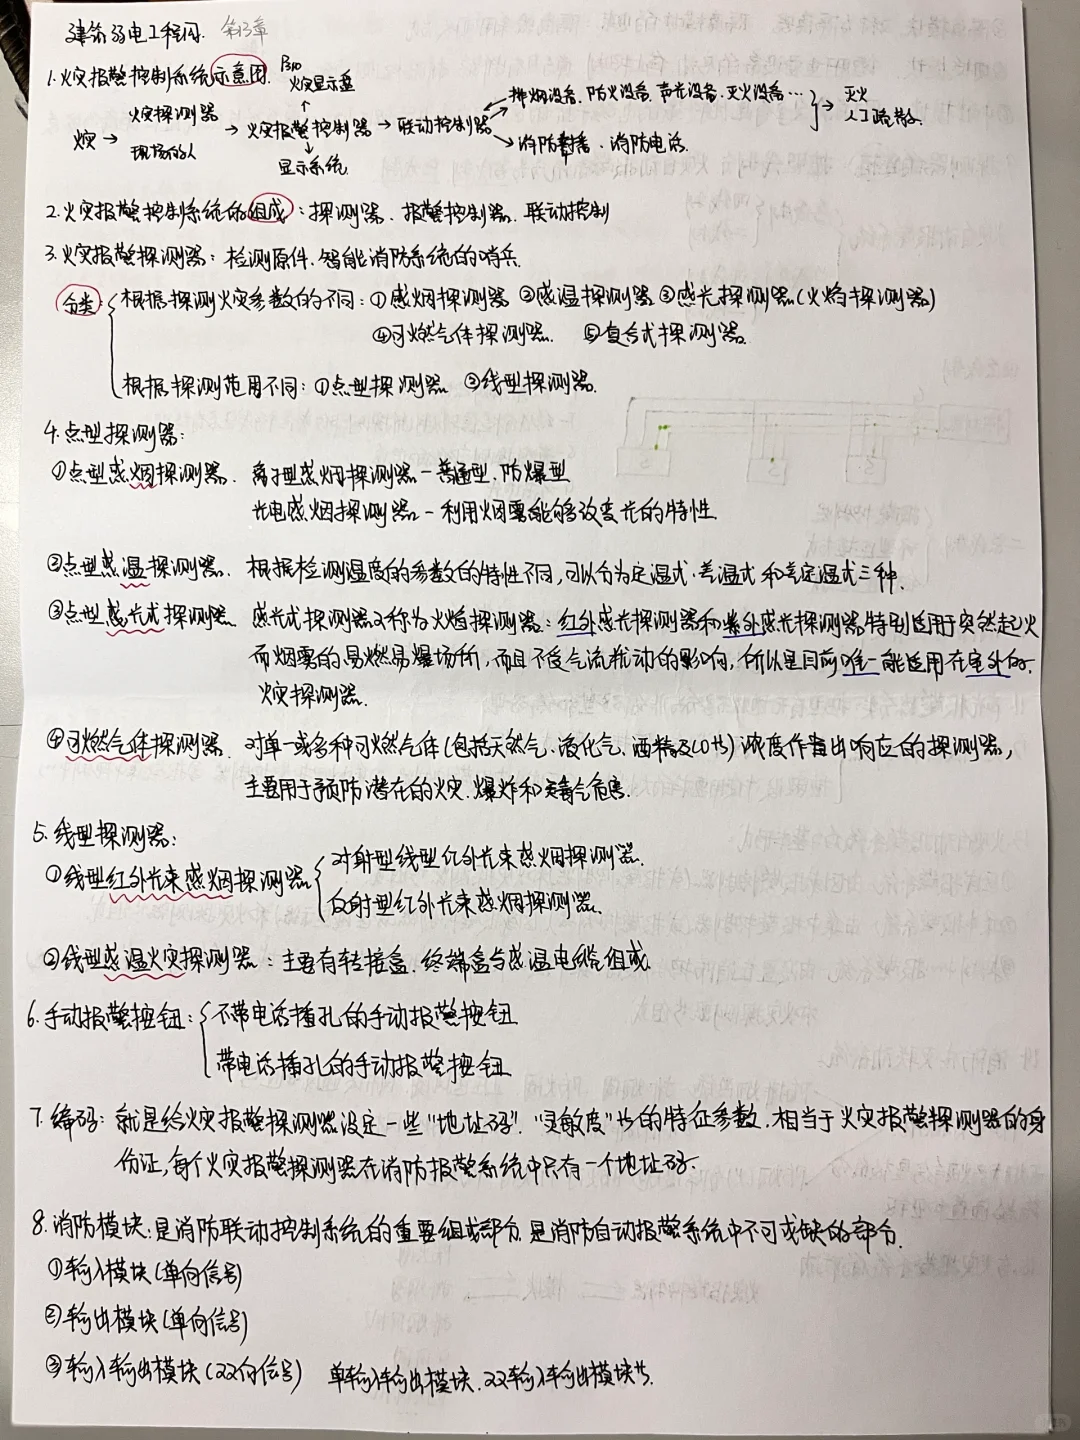 建筑弱电工程识图. 第13章
1.火灾报警控制系统示意图. P310
火灾显示盘
火灾 → 火灾探测器 现场的人 → 火灾报警控制器 → 联动控制器
排烟设备、防火设备、声光设备、灭火设备… → 灭火 人员疏散.
消防广播、消防电话.
显示系统
2.火灾报警控制系统的组成:探测器、报警控制器、联动控制
3.火灾报警探测器:检测原件、智能消防系统的哨兵.
分类: 根据探测火灾参数的不同:①感烟探测器 ②感温探测器 ③感光探测器(火焰探测器)
④可燃气体探测器. ⑤复合式探测器.
根据探测范围不同:①点型探测器 ②线型探测器.
4.点型探测器:
①点型感烟探测器. 离子型感烟探测器-普通型、防爆型
光电感烟探测器-利用烟雾能够改变光的特性
②点型感温探测器. 根据检测温度的参数的特性不同,可以分为定温式、差温式和差定温式三种.
③点型感光式探测器 感光式探测器又称为火焰探测器:红外感光探测器和紫外感光探测器特别适用于突然起火
而烟雾的易燃易爆场所,而且不受气流扰动的影响,所以是目前唯一能适用在室外的.
火灾探测器.
④可燃气体探测器. 对单一或多种可燃气体(包括天然气、液化气、酒精及CO等)浓度作出响应的探测器,
主要用于预防潜在的火灾、爆炸和毒气危害.
5.线型探测器:
①线型红外光束感烟探测器 对射型线型红外光束感烟探测器.
反射型红外光束感烟探测器.
②线型感温火灾探测器:主要有转接盒、终端盒与感温电缆组成.
6.手动报警按钮: 不带电话插孔的手动报警按钮
带电话插孔的手动报警按钮
7.编码:就是给火灾报警探测器设定一些"地址码"、"灵敏度"等的特征参数.相当于火灾报警探测器的身
份证,每个火灾报警探测器在消防报警系统中只有一个地址码.
8.消防模块:是消防联动控制系统的重要组成部分.是消防自动报警系统中不可或缺的部分.
①输入模块(单向信号)
②输出模块(单向信号)
③输入输出模块(双向信号) 单输入输出模块、双输入输出模块等.